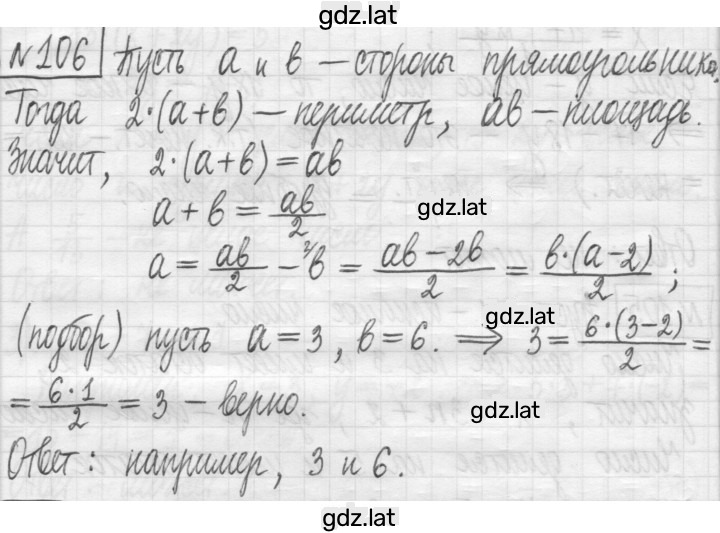 gdz.lat
№106 Пусть a и b — стороны прямоугольника.
Тогда 2·(a+b) — периметр, ab — площадь.
Значит, 2·(a+b) = ab
a + b = ab/2
gdz.lat
a = ab/2 − ²b = (ab − 2b)/2 = b·(a−2)/2 ;
gdz.lat
(подбор) пусть a = 3, b = 6. ⟹ 3 = 6·(3−2)/2 =
= 6·1/2 = 3 — верно.
gdz.lat
Ответ: например, 3 и 6.
gdz.lat